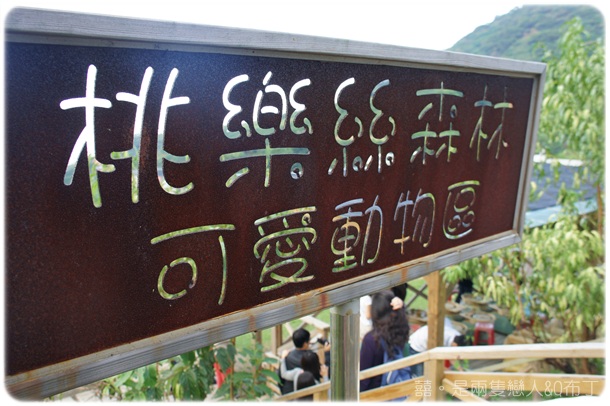 桃樂絲森林
可愛動物區
囍。是兩隻戀人&Q布丁